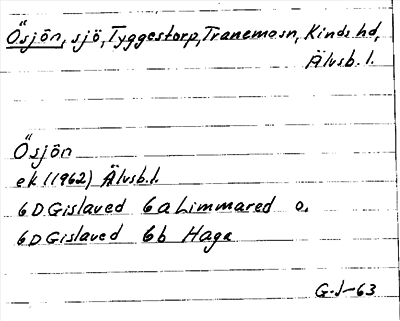 Ösjön, sjö, Tyggestorp, Tranemasn, Kinds hd,
Älvsb. l.
Ösjön
ek (1962) Älvsb.l.
6D Gislaved 6a Limmared o.
6D Gislaved 6b Haga
G.J-63